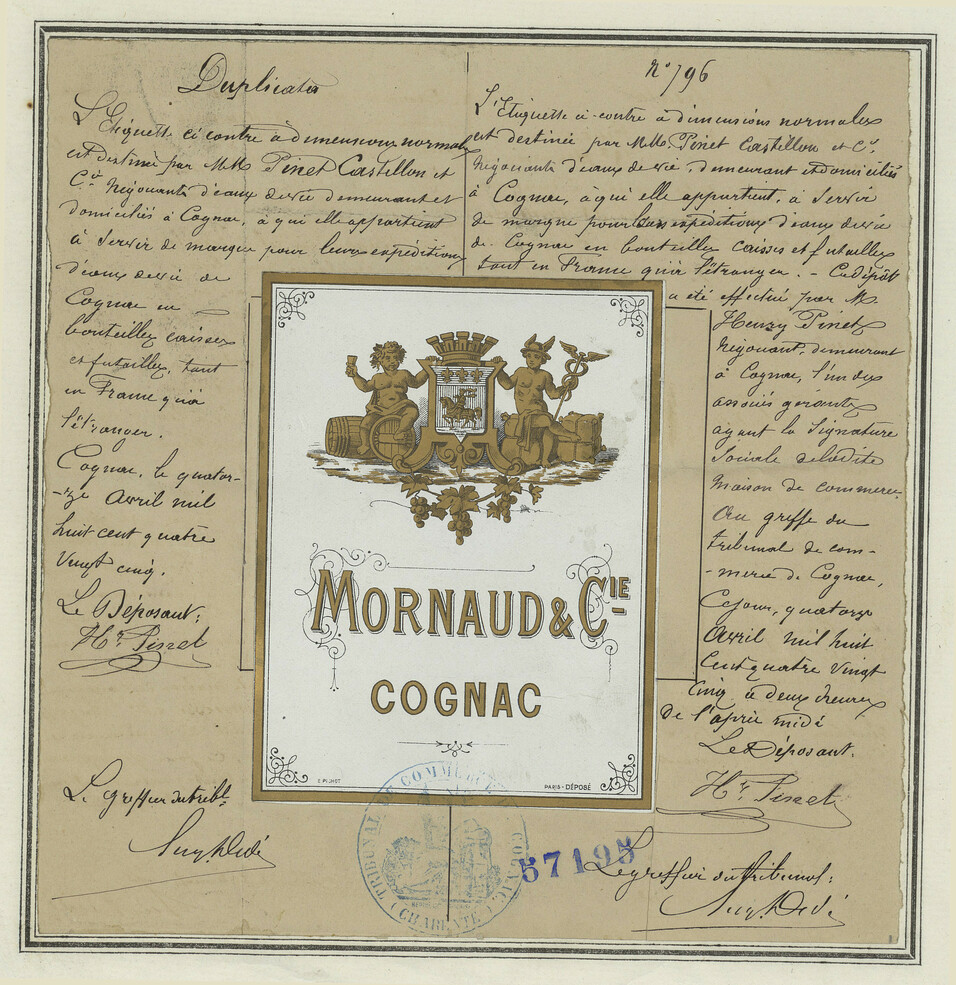 Duplicata
L'Etiquette ci contre à dimensions normales
est destinée par MM. Pinet Castillon et
Cie Négociants d'eaux de vie demeurant et
domiciliés à Cognac, à qui elle appartient
à servir de marque pour leurs expéditions
d'eaux de vie de
Cognac en
bouteilles caisses
et futailles, tant
en France qu'à
l'étranger.
Cognac, le quator-
-ze Avril mil
huit cent quatre
vingt cinq.
Le Déposant:
Hy Pinet
Le greffier du tribl.
N° 796
L'Etiquette ci-contre à dimensions normales
est destinée par MM. Pinet Castillon et Cie
Négociants d'eaux de vie, demeurant et domiciliés
à Cognac, à qui elle appartient, à servir
de marque pour leurs expéditions d'eaux de vie
de Cognac en bouteilles caisses et futailles
tant en France qu'à l'étranger. - Ce dépôt
a été effectué par M.
Henry Pinet
Négociant, demeurant
à Cognac, l'un des
associés gérants
ayant la signature
sociale de ladite
maison de commerce
Au greffe du
tribunal de com-
-merce de Cognac,
Ce jour, quatorze
Avril mil huit
cent quatre vingt
cinq à deux heures
de l'après midi
Le Déposant.
Hy Pinet
Le greffier du tribunal:
MORNAUD & CIE
COGNAC
PARIS - DÉPOSÉ
TRIBUNAL DE COMMERCE COGNAC (CHARENTE)
57195